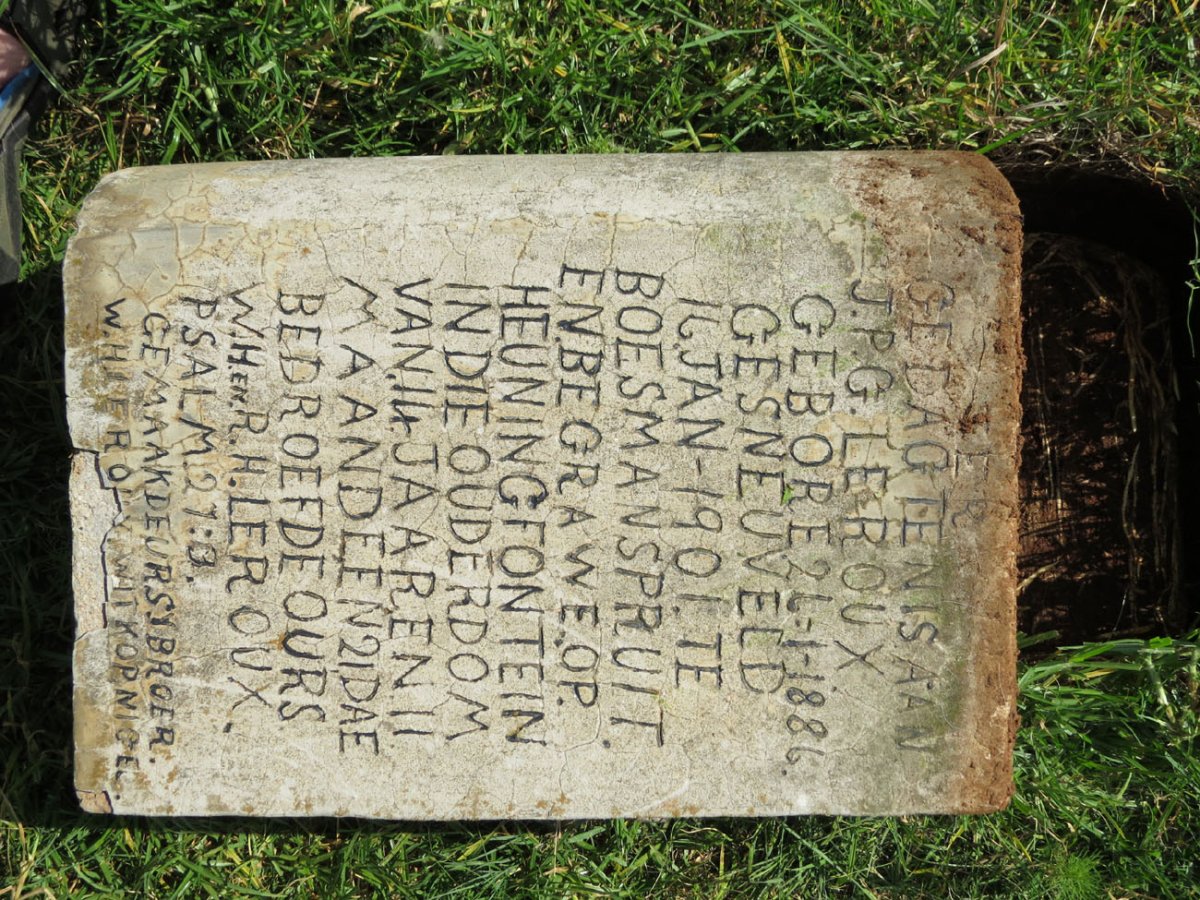 TER
GEDAGTENIS.AAN
J.P.G.LE ROUX
GEBORE 26-1-1886.
GESNEUVELD
16.JAN-1901.TE
BOESMANSPRUIT.
EN.BEGRAWE.OP.
HEUNINGFONTEIN
IN DIE OUDERDOM
VAN.14.JAAREN 11
MAANDE EN 21 DAE
BEDROEFDE OURS
W.H.EN.R.H.LE ROUX.
PSALM 127:3.
GEMAAK DEUR SY BROER.
W.H LE ROUX WITKOP NIGEL.